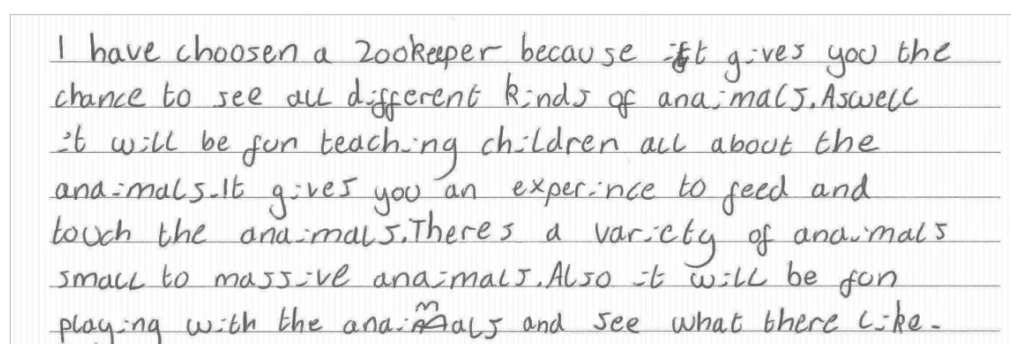 I have choosen a Zookeeper because it gives you the
chance to see all different kinds of anaimals. Aswell
it will be fun teaching children all about the
anaimals. It gives you an experince to feed and
touch the anaimals. Theres a varicty of anaimals
small to massive anaimals. Also it will be fun
playing with the anaimals and see what there like.